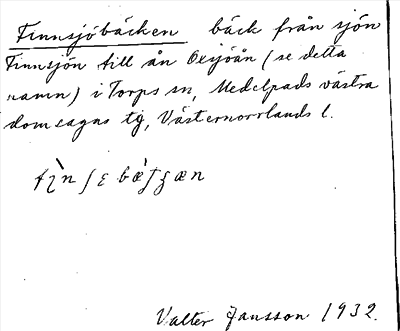 Finnsjöbäcken bäck från sjön
Finnsjön till ån Oxsjöån (se detta
namn) i Torps sn, Medelpads västra
domsagas tg, Västernorrlands l.
Valter Jansson 1932.